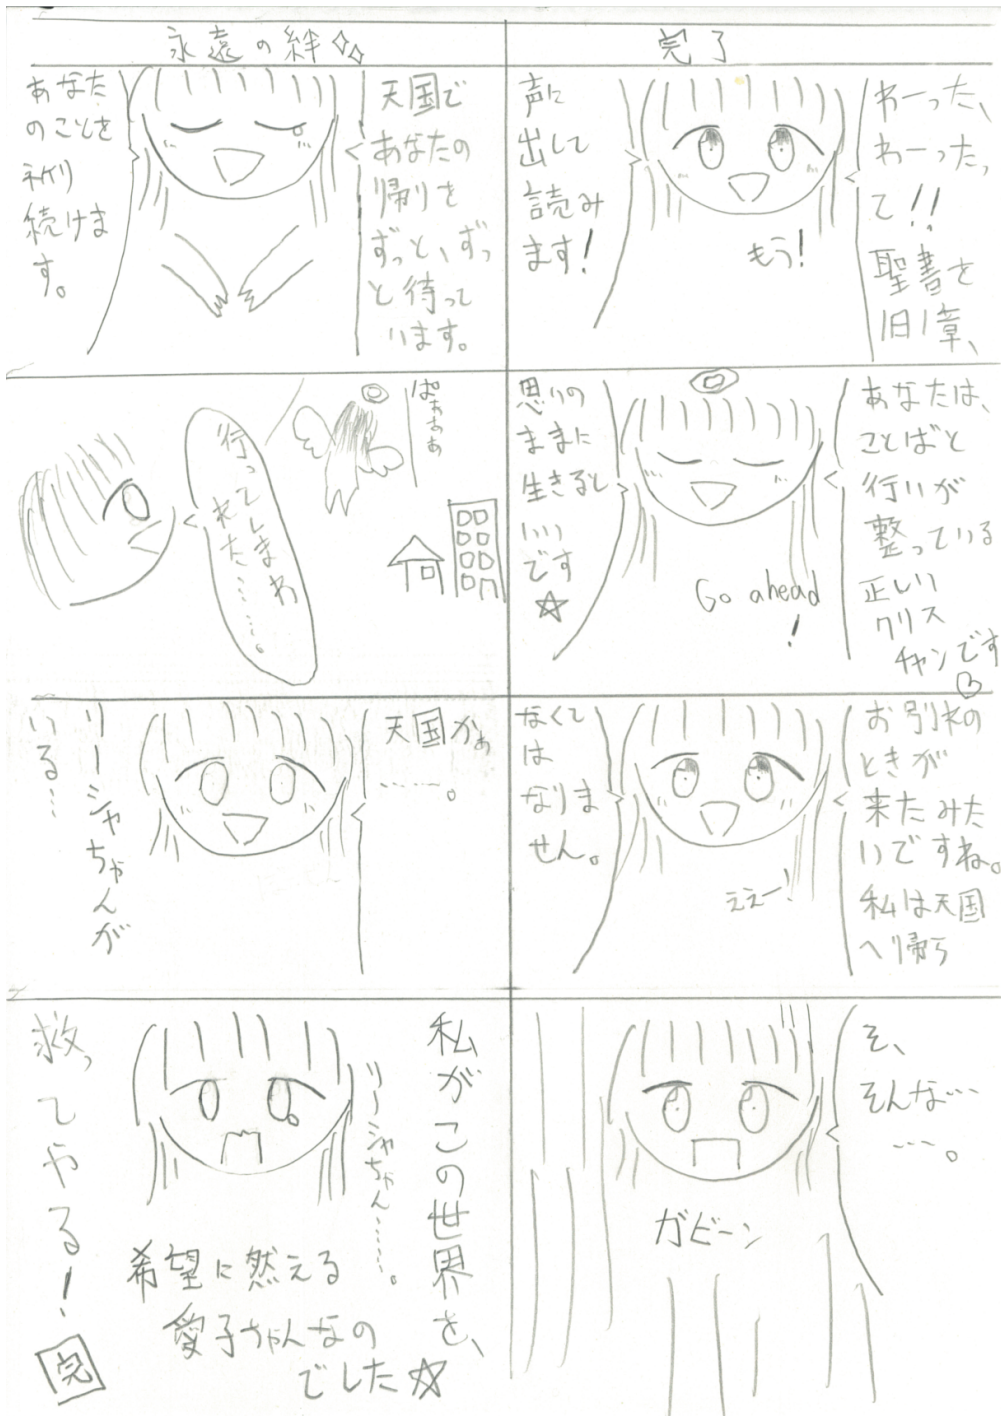 完了
わーった、
わーったっ
て!!
聖書を
旧1章、
声に
出して
読み
ます!
もう!
あなたは、
ことばと
行いが
整っている
正しい
クリス
チャンです♡
思いの
ままに
生きると
いい
です
☆
Go ahead
!
お別れの
ときが
来たみた
いですね。
私は天国
へ帰ら
なくて
は
なりま
せん。
ええー!
そ、
そんな…
…。
ガビーン
永遠の絆✧✧
天国で
あなたの
帰りを
ずっと、ずっ
と待って
います。
あなた
のことを
祈り
続けま
す。
ぱぁぁぁ
行ってしまわ
れた……。
天国かぁ
……。
リーシャちゃんが
いる…
私がこの世界を、
リーシャちゃん……。
救ってやる!
希望に燃える
愛子ちゃんなの
でした☆
完